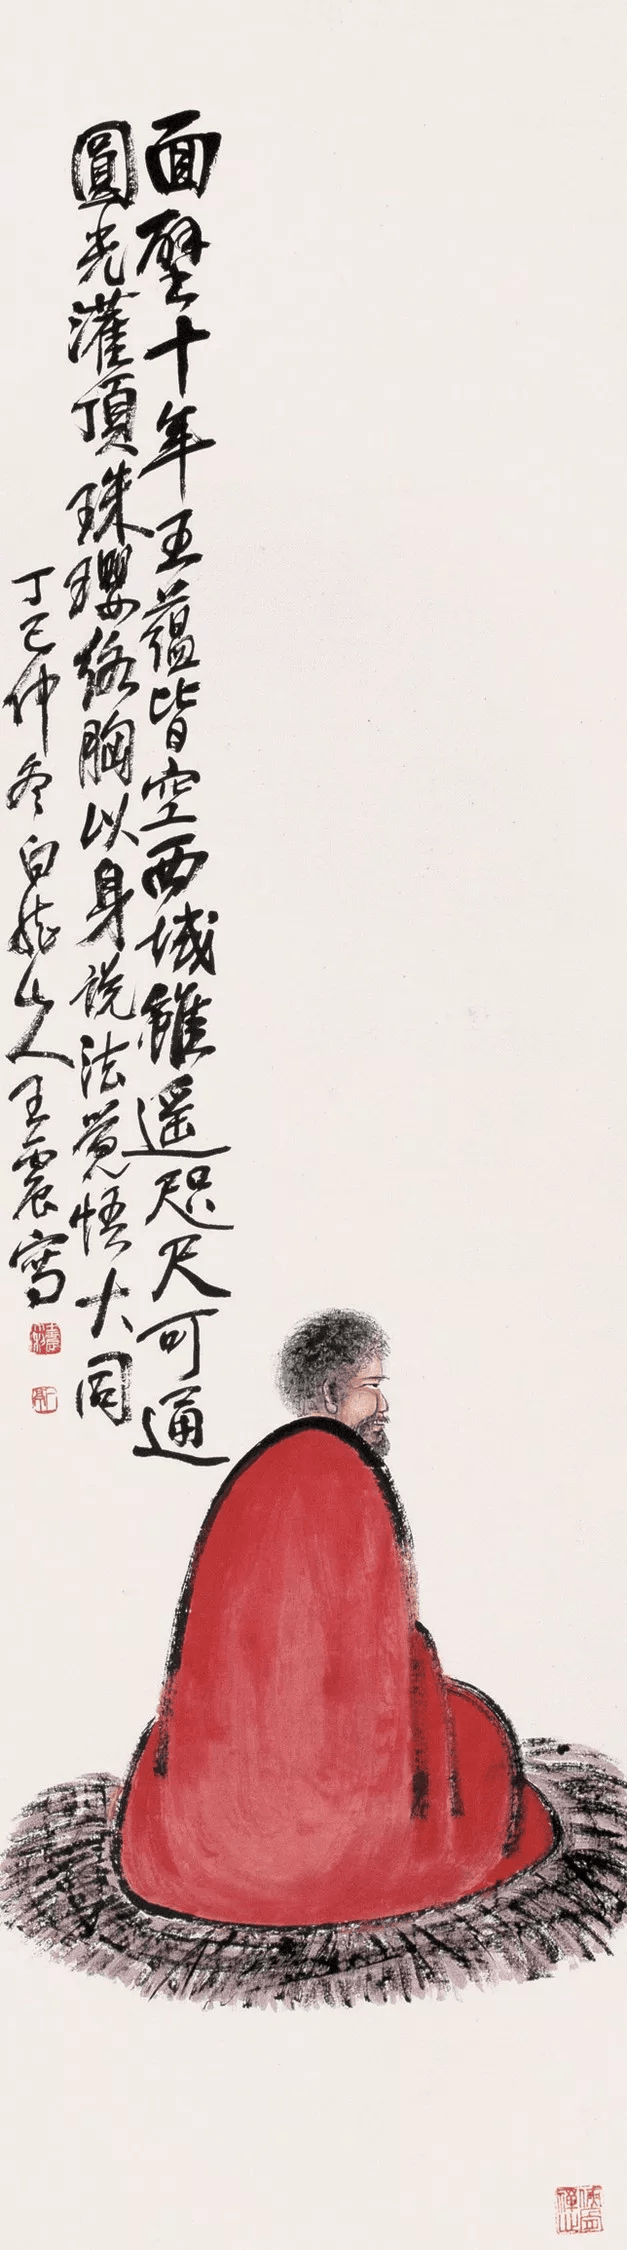 面壁十年五蕴皆空西域雖遥咫尺可通
圓光灌頂珠瓔絡胸以身説法覺悟大同
丁巳仲冬白龍山人王震寫